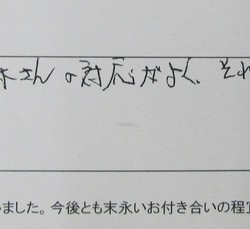 さんの対応がよく、それ
ました。今後とも末永いお付き合いの程